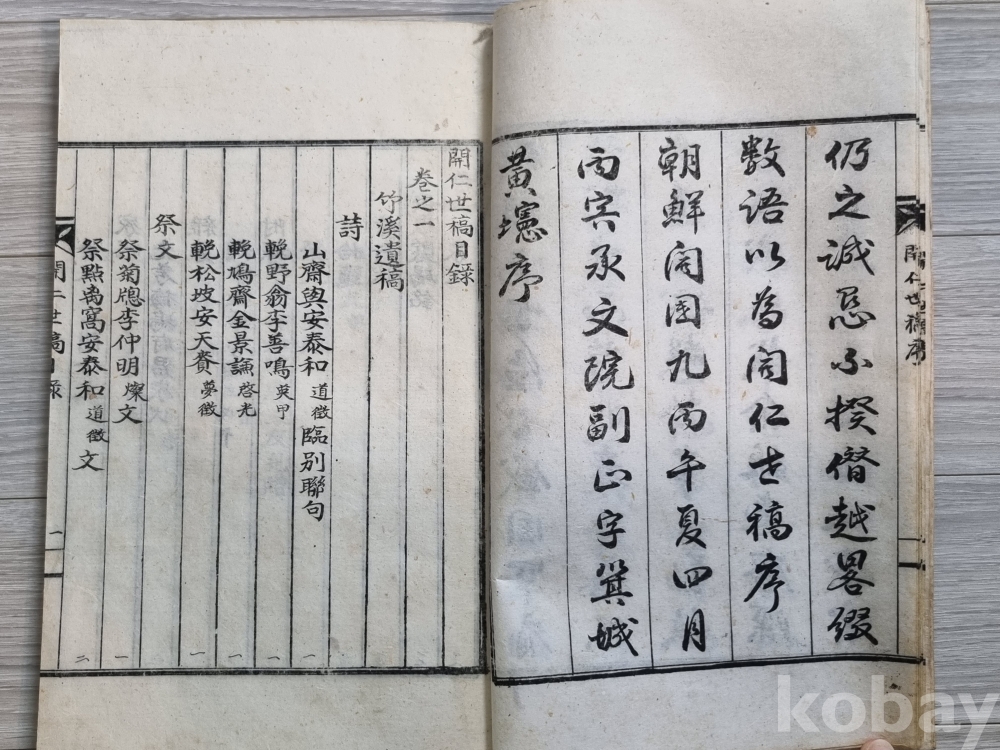 仍之誠不揆僭越畧綴
數語以為開仁世稿序
朝鮮開國九丙午夏四月
丙寅承文院副正字箕城
黃序
開仁世稿序
開仁世稿目錄
卷之一
竹溪遺稿
詩
山齋與安泰和道徵臨別聯句 一
輓野翁李善鳴英甲 一
輓鳩齋金景謙啓光 一
輓松坡安天賚夢徵 一
祭文
祭菊牕李仲明燦文 一
祭點禹窩安泰和道徵文 二
開仁世稿目錄 一
kobay